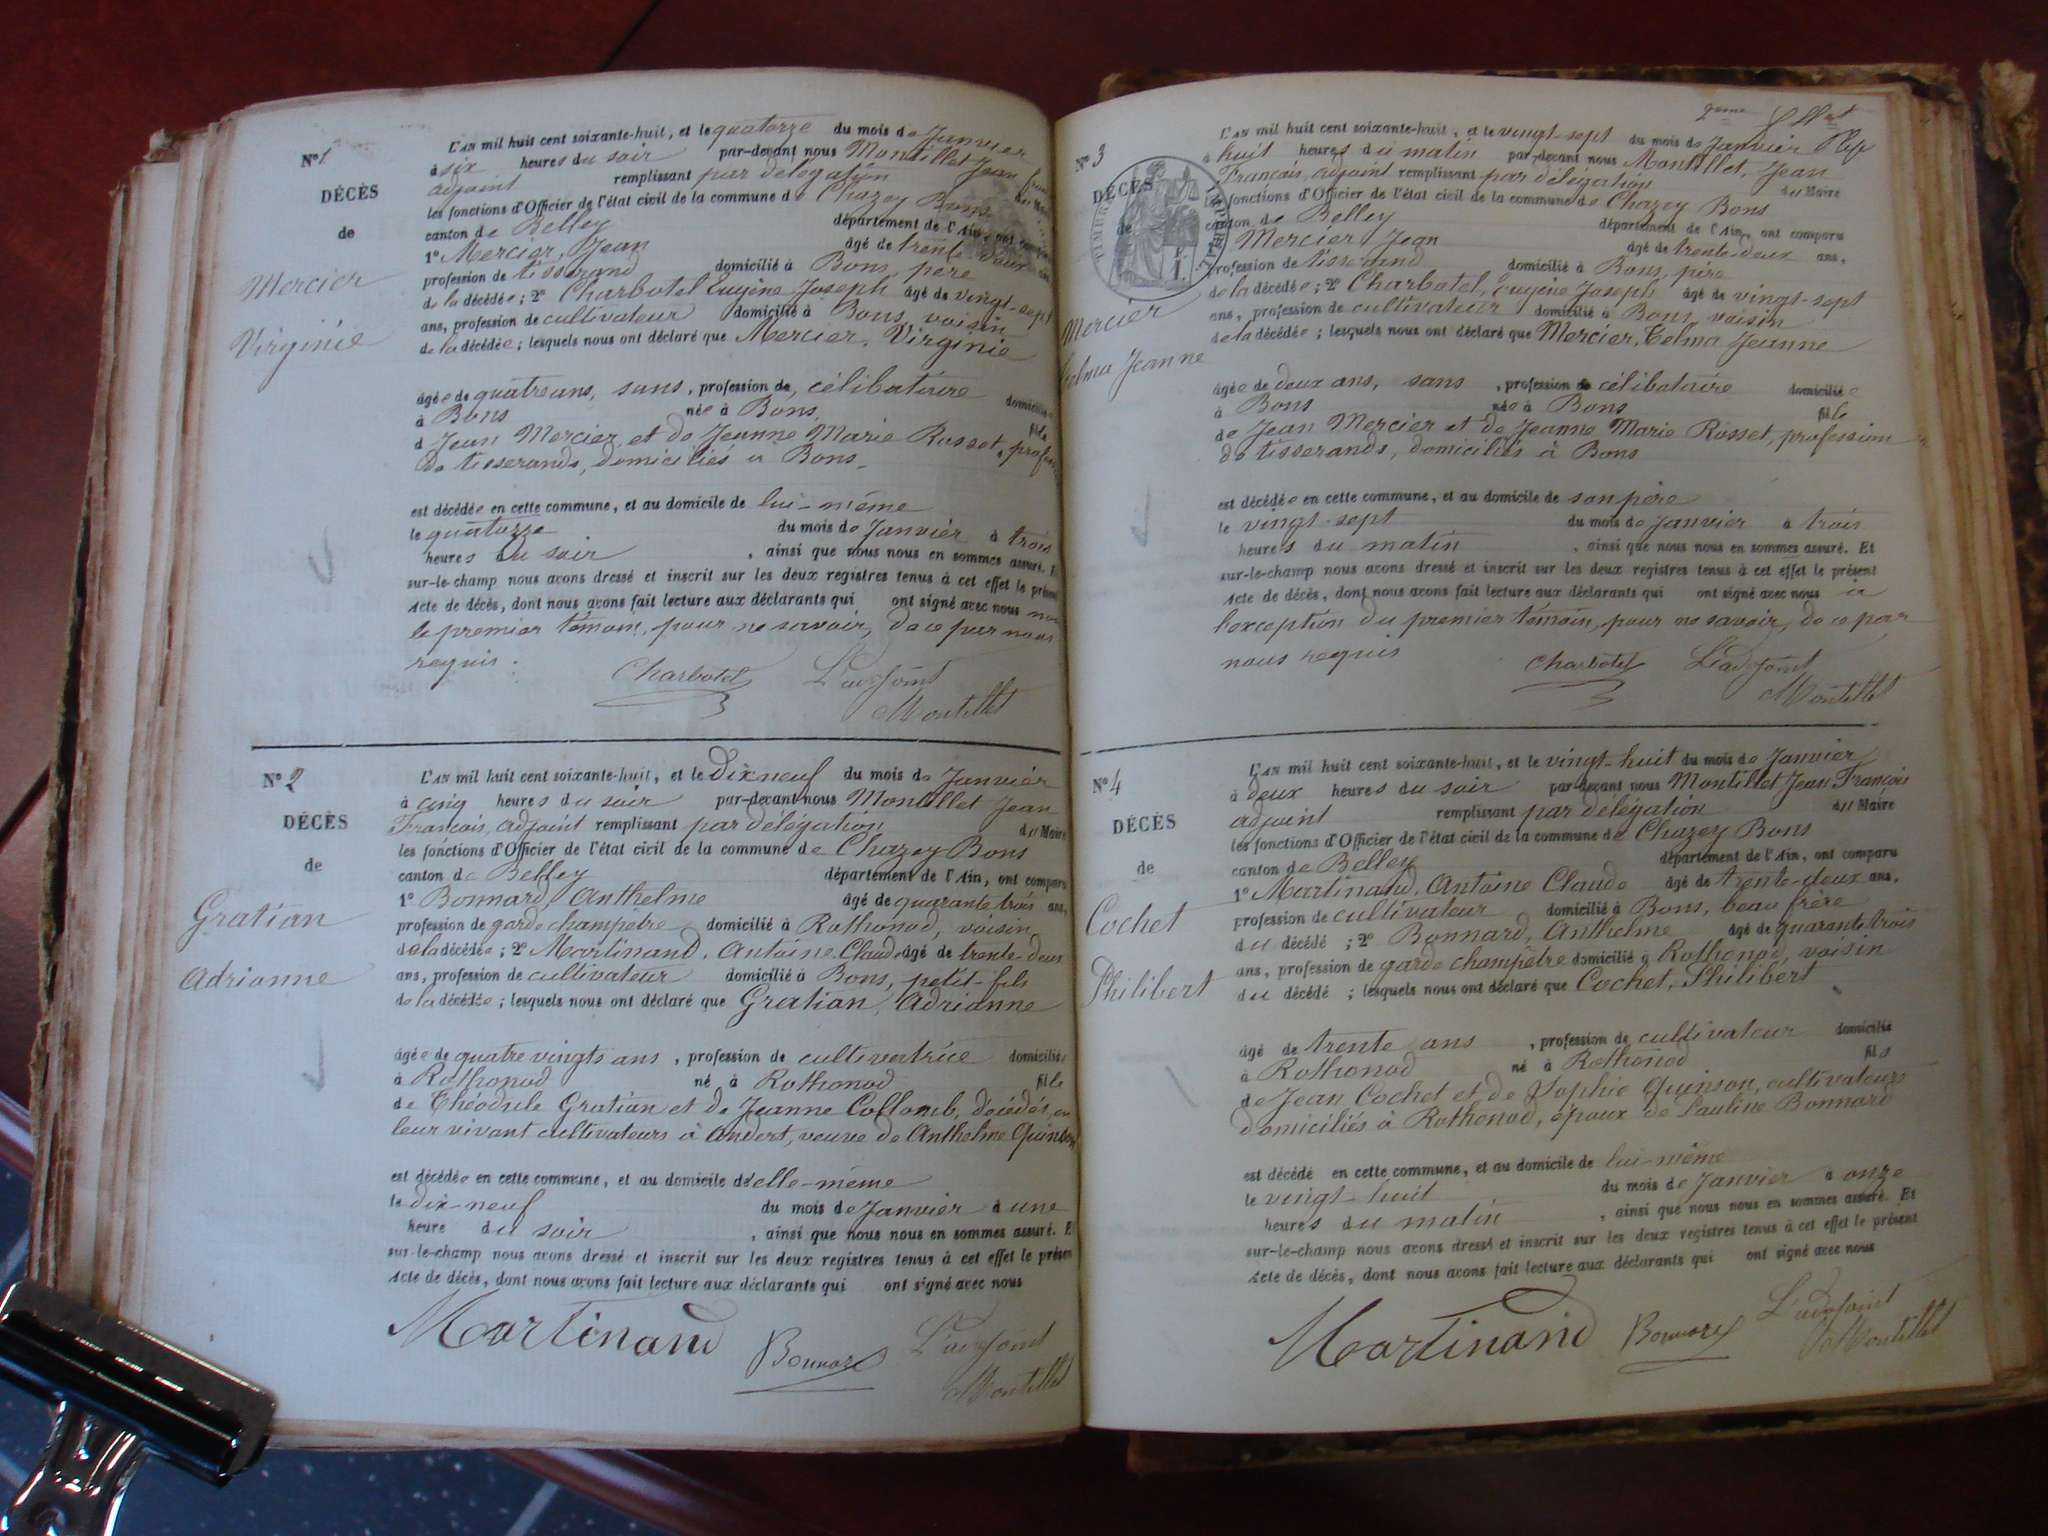 N° 1
DÉCÈS
de
Mercier
Virginie
L'AN mil huit cent soixante-huit, et le quatorze du mois de Janvier
à six heures du soir par-devant nous Montillet Jean
adjoint remplissant par délégation du Maire
les fonctions d'Officier de l'état civil de la commune de Chazey Bons
canton de Belley département de l'Ain, ont comparu
1° Mercier, Jean âgé de trente deux ans,
profession de tisserand domicilié à Bons, père
de la décédée ; 2° Charbotel Eugène Joseph âgé de vingt-sept
ans, profession de cultivateur domicilié à Bons, voisin
de la décédée ; lesquels nous ont déclaré que Mercier, Virginie
âgée de quatre ans, sans , profession de, célibataire domiciliée
à Bons née à Bons, fille
d Jean Mercier et de Jeanne Marie Rosset, profession
de tisserands, domiciliés à Bons.
est décédée en cette commune, et au domicile de lui-même
le quatorze du mois de Janvier à trois
heures du soir , ainsi que nous nous en sommes assuré. Et
sur-le-champ nous avons dressé et inscrit sur les deux registres tenus à cet effet le présent
Acte de décès, dont nous avons fait lecture aux déclarants qui ont signé avec nous non
le premier témoin, pour ne savoir, de ce par nous
requis.
Charbotel L'adjoint
Montillet
N° 2
DÉCÈS
de
Gratian
Adrianne
L'AN mil huit cent soixante-huit, et le dix neuf du mois de Janvier
à cinq heures du soir par-devant nous Montillet Jean
François, adjoint remplissant par délégation du Maire
les fonctions d'Officier de l'état civil de la commune de Chazey Bons
canton de Belley département de l'Ain, ont comparu
1° Bonnard Anthelme âgé de quarante trois ans,
profession de garde champêtre domicilié à Rothonod, voisin
de la décédée ; 2° Martinand, Antoine Claude âgé de trente-deux
ans, profession de cultivateur domicilié à Bons, petit-fils
de la décédée ; lesquels nous ont déclaré que Gratian, Adrianne
âgée de quatre vingts ans , profession de cultivatrice domiciliée
à Rothonod né à Rothonod fille
de Théodule Gratian et de Jeanne Collomb, décédés, en
leur vivant cultivateurs à Andert, veuve de Anthelme Quinson
est décédée en cette commune, et au domicile d'elle-même
le dix-neuf du mois de Janvier à une
heure du soir , ainsi que nous nous en sommes assuré. Et
sur-le-champ nous avons dressé et inscrit sur les deux registres tenus à cet effet le présent
Acte de décès, dont nous avons fait lecture aux déclarants qui ont signé avec nous
Martinand Bonnard L'adjoint
Montillet
2ème
N° 3
DÉCÈS
de
TIMBRE IMPERIAL
Mercier
Telma Jeanne
L'AN mil huit cent soixante-huit, et le vingt-sept du mois de Janvier
à huit heures du matin par-devant nous Montillet, Jean
François, adjoint remplissant par délégation du Maire
les fonctions d'Officier de l'état civil de la commune de Chazey Bons
canton de Belley département de l'Ain, ont comparu
Mercier Jean âgé de trente-deux ans,
profession de tisserand domicilié à Bons, père
de la décédée ; 2° Charbotel, Eugène Joseph âgé de vingt-sept
ans, profession de cultivateur domicilié à Bons, voisin
de la décédée ; lesquels nous ont déclaré que Mercier, Telma Jeanne
âgée de deux ans, sans , profession de célibataire domiciliée
à Bons née à Bons fille
de Jean Mercier et de Jeanne Marie Rosset, profession
de tisserands, domiciliés à Bons
est décédée en cette commune, et au domicile de son père
le vingt-sept du mois de Janvier à trois
heures du matin , ainsi que nous nous en sommes assuré. Et
sur-le-champ nous avons dressé et inscrit sur les deux registres tenus à cet effet le présent
Acte de décès, dont nous avons fait lecture aux déclarants qui ont signé avec nous à
l'exception du premier témoin, pour ne savoir, de ce par
nous requis
Charbotel L'adjoint
Montillet
N° 4
DÉCÈS
de
Cochet
Philibert
L'AN mil huit cent soixante-huit, et le vingt-huit du mois de Janvier
à deux heures du soir par-devant nous Montillet Jean François
adjoint remplissant par délégation du Maire
les fonctions d'Officier de l'état civil de la commune de Chazey Bons
canton de Belley département de l'Ain, ont comparu
1° Martinand, Antoine Claude âgé de trente-deux ans,
profession de cultivateur domicilié à Bons, beau frère
du décédé ; 2° Bonnard, Anthelme âgé de quarante trois
ans, profession de garde champêtre domicilié à Rothonod, voisin
du décédé ; lesquels nous ont déclaré que Cochet, Philibert
âgé de trente ans , profession de cultivateur domicilié
à Rothonod né à Rothonod fils
de Jean Cochet et de Sophie Quinson, cultivateurs
domiciliés à Rothonod, époux de Pauline Bonnard
est décédé en cette commune, et au domicile de lui-même
le vingt-huit du mois de Janvier à onze
heures du matin , ainsi que nous nous en sommes assuré. Et
sur-le-champ nous avons dressé et inscrit sur les deux registres tenus à cet effet le présent
Acte de décès, dont nous avons fait lecture aux déclarants qui ont signé avec nous
Martinand Bonnard L'adjoint
Montillet